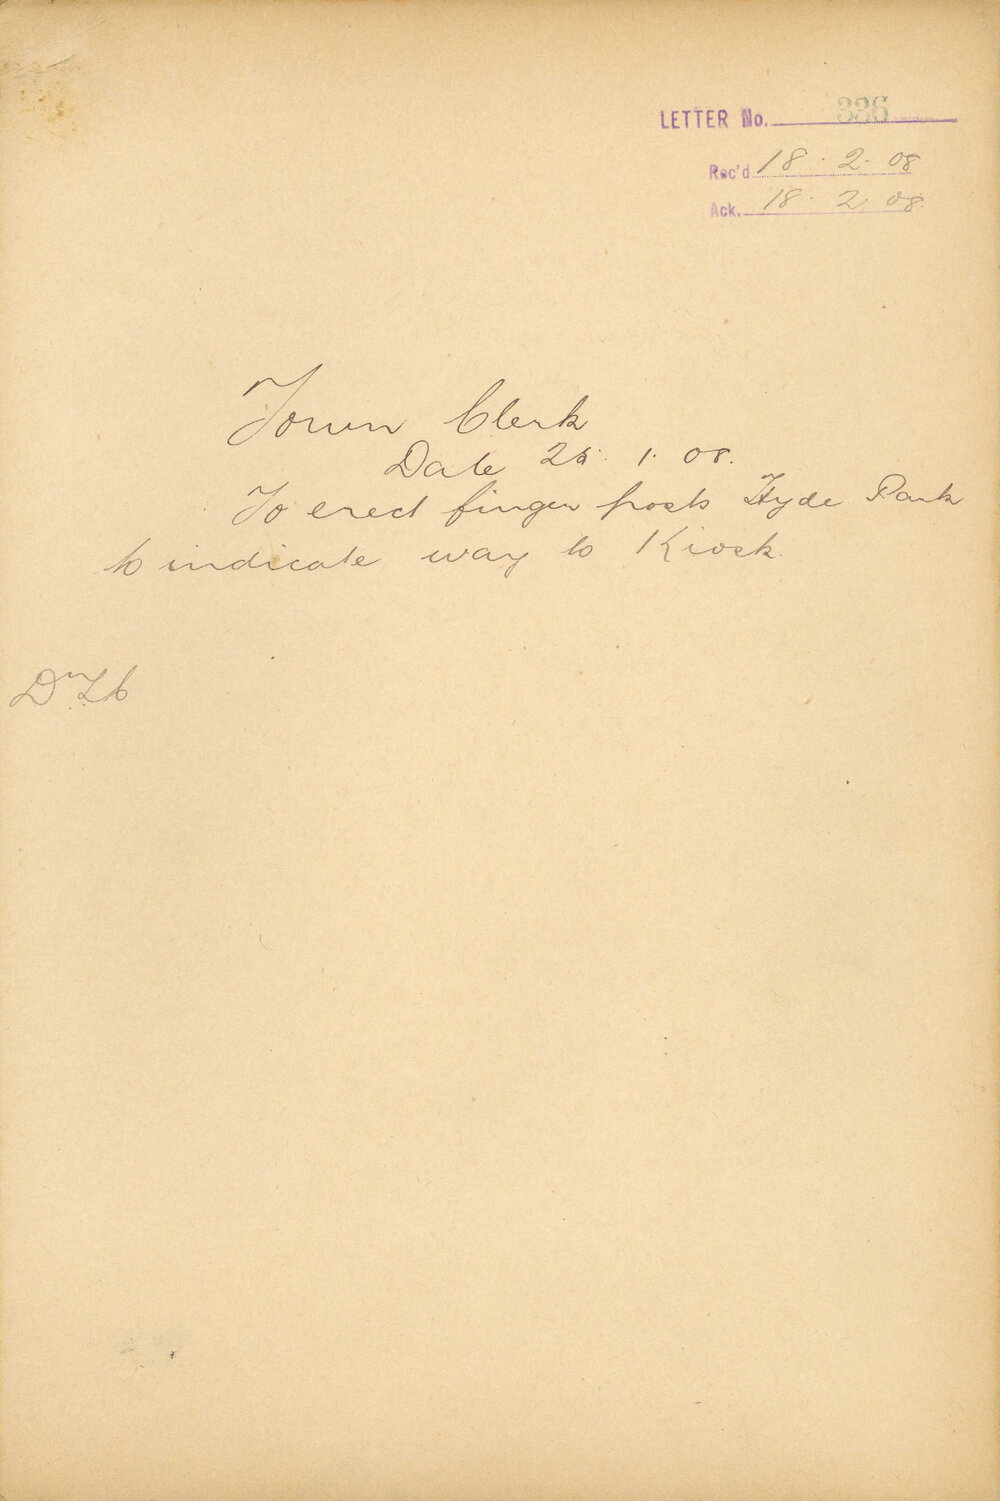 LETTER No. 336
Rec'd 18. 2. 08
Ack. 18. 2 08
Town Clerk
Date 25. 1. 08.
To erect finger posts Hyde Park
to indicate way to Kiosk.